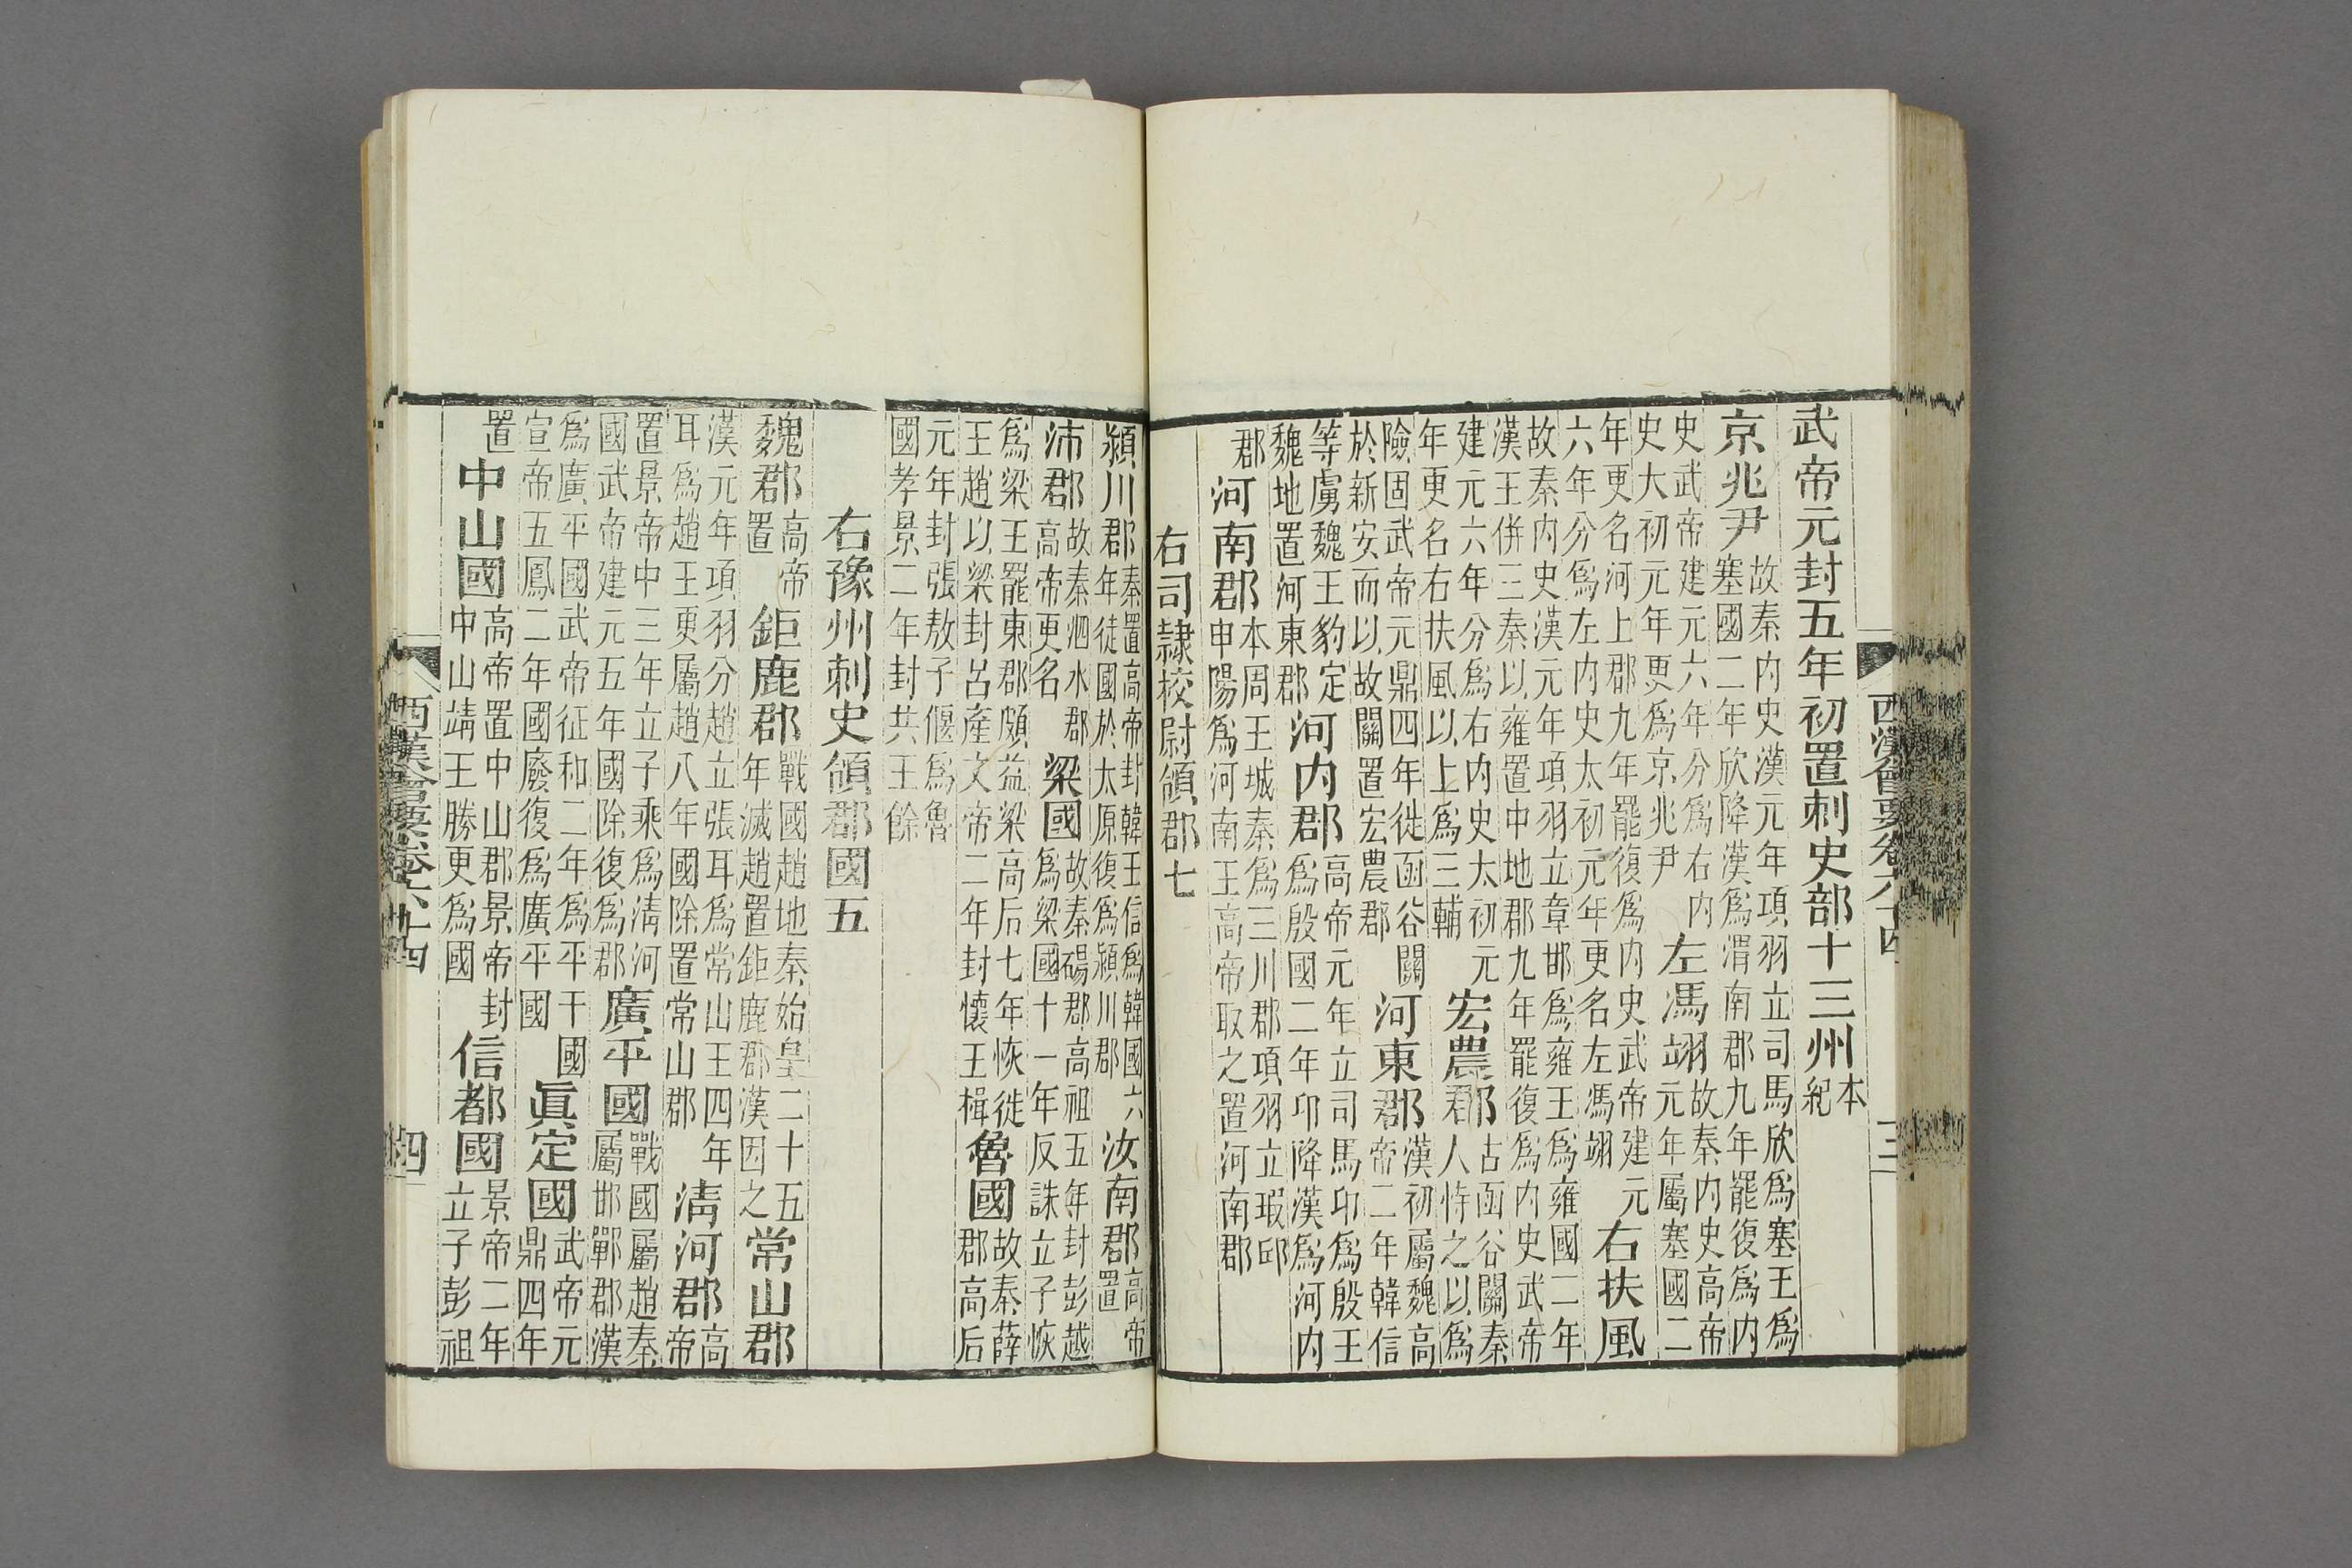 西漢會要卷六十四 三
武帝元封五年初置刺史部十三州本紀
京兆尹故秦內史漢元年項羽立司馬欣爲塞王爲塞國二年欣降漢爲渭南郡九年罷復爲內
史武帝建元六年分爲右內史大初元年更爲京兆尹左馮翊故秦內史高帝元年屬塞國二
年更名河上郡九年罷復爲內史武帝建元六年分爲左內史太初元年更名左馮翊右扶風
故秦內史漢元年項羽立章邯爲雍王爲雍國二年漢王併三秦以雍置中地郡九年罷復爲內史武帝
建元六年分爲右內史太初元年更名右扶風以上爲三輔宏農郡古函谷關秦人恃之以爲
險固武帝元鼎四年徙函谷關於新安而以故關置宏農郡河東郡漢初屬魏高帝二年韓信
等虜魏王豹定魏地置河東郡河內郡高帝元年立司馬卬爲殷王爲殷國二年卬降漢爲河內
郡河南郡本周王城秦爲三川郡項羽立瑕邱申陽爲河南王高帝取之置河南郡
右司隸校尉領郡七
潁川郡秦置高帝封韓王信爲韓國六年徙國於太原復爲潁川郡汝南郡高帝置
沛郡故秦泗水郡高帝更名梁國故秦碭郡高祖五年封彭越爲梁國十一年反誅立子恢
爲梁王罷東郡頗益梁高后七年恢徙王趙以梁封呂產文帝二年封懷王楫魯國故秦薛郡高后
元年封張敖子偃爲魯國孝景二年封共王餘
右豫州刺史領郡國五
魏郡高帝置鉅鹿郡戰國趙地秦始皇二十五年滅趙置鉅鹿郡漢因之常山郡
漢元年項羽分趙立張耳爲常山王四年耳爲趙王更屬趙八年國除置常山郡清河郡高帝
置景帝中三年立子乘爲清河國武帝建元五年國除復爲郡廣平國戰國屬趙秦屬邯鄲郡漢
爲廣平國武帝征和二年爲平干國宣帝五鳳二年國廢復爲廣平國眞定國武帝元鼎四年
置中山國高帝置中山郡景帝封中山靖王勝更爲國信都國景帝二年立子彭祖
西漢會要卷六十四 四